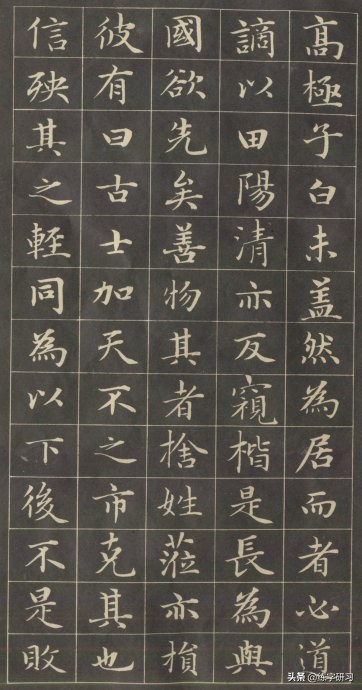 高極子白未盖然為居而者心道
謫以田陽清亦反窺楷是長為與
國欲先矣善物其者捨姓蒞亦損
彼有曰古士加天不之市克其也
信殃其之輕同為以下後不是敗
头条 @练字研习